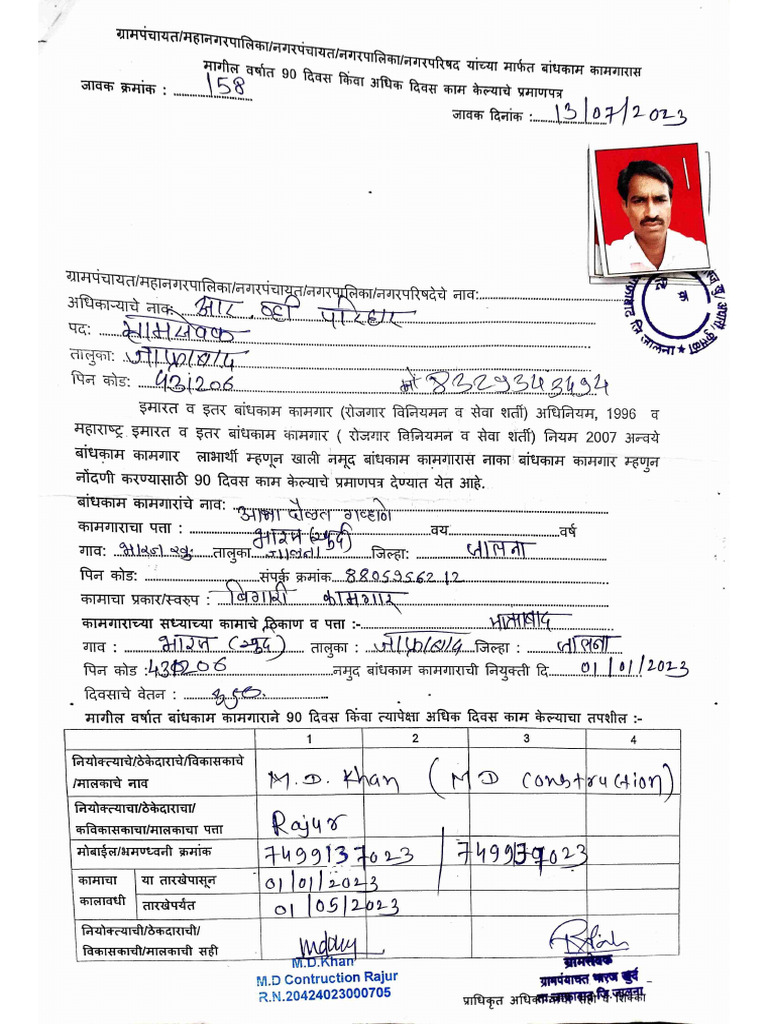 ग्रामपंचायत/महानगरपालिका/नगरपंचायत/नगरपालिका/नगरपरिषद यांच्या मार्फत बांधकाम कामगारास
मागील वर्षात 90 दिवस किंवा अधिक दिवस काम केल्याचे प्रमाणपत्र
जावक क्रमांक : 158
जावक दिनांक : 13/07/2023
ग्रामपंचायत/महानगरपालिका/नगरपंचायत/नगरपालिका/नगरपरिषदेचे नाव:
अधिकाऱ्याचे नाक: आर. व्ही परिहार
पद: ग्रामसेवक
तालुका: जाफ्राबाद
पिन कोड: 431206 मो 8329343494
इमारत व इतर बांधकाम कामगार (रोजगार विनियमन व सेवा शर्ती) अधिनियम, 1996 व
महाराष्ट्र इमारत व इतर बांधकाम कामगार ( रोजगार विनियमन व सेवा शर्ती) नियम 2007 अन्वये
बांधकाम कामगार लाभार्थी म्हणून खाली नमूद बांधकाम कामगारास नाका बांधकाम कामगार म्हणुन
नोंदणी करण्यासाठी 90 दिवस काम केल्याचे प्रमाणपत्र देण्यात येत आहे.
बांधकाम कामगारांचे नाव: दौलत गव्हाणे
कामगाराचा पत्ता : भारज (खुर्द) वय वर्ष
गाव: भारज खु. तालुका जालना जिल्हा: जालना
पिन कोड: संपर्क क्रमांक 8805956212
कामाचा प्रकार/स्वरुप : बिगारी कामगार
कामगाराच्या सध्याच्या कामाचे ठिकाण व पत्ता :-
गाव : भारज (खुर्द) तालुका : जाफ्राबाद जिल्हा : जालना
पिन कोड : 431206 नमुद बांधकाम कामगाराची नियुक्ती दि 01/01/2023
दिवसाचे वेतन :
मागील वर्षात बांधकाम कामगाराने 90 दिवस किंवा त्यापेक्षा अधिक दिवस काम केल्याचा तपशील :-
1 2 3 4
नियोक्त्याचे/ठेकेदाराचे/विकासकाचे
/मालकाचे नाव M.D. Khan (MD Construction)
नियोक्त्याचा/ठेकेदाराचा/
कविकासकाचा/मालकाचा पत्ता Rajur
मोबाईल/भ्रमणध्वनी क्रमांक 7499137023 / 7499137023
कामाचा या तारखेपासून 01/01/2023
कालावधी तारखेपर्यंत 01/05/2023
नियोक्त्याची/ठेकदाराची/
विकासकाची/मालकाची सही
M.D.Khan
M.D Contruction Rajur
R.N.20424023000705
ग्रामसेवक
ग्रामपंचायत भारज खुर्द
ता.जाफ्राबाद जि.जालना
प्राधिकृत अधिकाऱ्याची सही व शिक्का